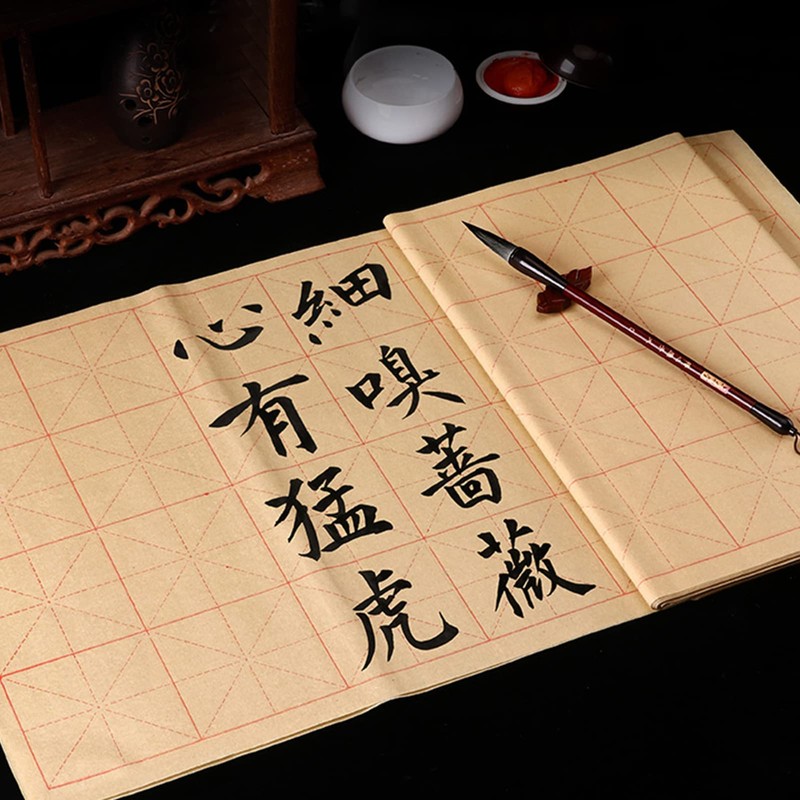 心有猛虎
細嗅薔薇